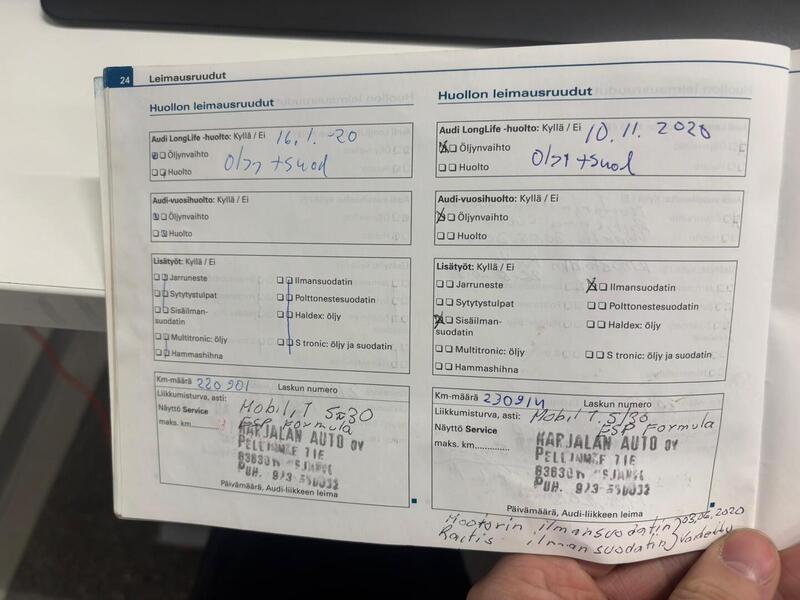 24 Leimausruudut
Huollon leimausruudut
Audi LongLife -huolto: Kyllä / Ei 16.1.-20
Öljynvaihto
Huolto
Öljy + suod
Audi-vuosihuolto: Kyllä / Ei
Öljynvaihto
Huolto
Lisätyöt: Kyllä / Ei
Jarruneste
Sytytystulpat
Sisäilman-
suodatin
Multitronic: öljy
Hammashihna
Ilmansuodatin
Polttonestesuodatin
Haldex: öljy
S tronic: öljy ja suodatin
Km-määrä 220901 Laskun numero
Liikkumisturva, asti: Mobil, 1 5-30
Näyttö Service ESP Formula
maks. km
KARJALAN AUTO OY
PELLINNKE TIE
PUH. 973-550032
Päivämäärä, Audi-liikkeen leima
Huollon leimausruudut
Audi LongLife -huolto: Kyllä / Ei 10.11.2020
Öljynvaihto
Huolto
Öljy + suod
Audi-vuosihuolto: Kyllä / Ei
Öljynvaihto
Huolto
Lisätyöt: Kyllä / Ei
Jarruneste
Sytytystulpat
Sisäilman-
suodatin
Multitronic: öljy
Hammashihna
Ilmansuodatin
Polttonestesuodatin
Haldex: öljy
S tronic: öljy ja suodatin
Km-määrä 230914 Laskun numero
Liikkumisturva, asti: Mobil 1. 5/30
Näyttö Service ESP Formula
maks. km.............
KARJALAN AUTO OY
PELLINNKE TIE
PUH. 973-550032
Päivämäärä, Audi-liikkeen leima
Mootorin ilmansuodatin 03.06.2020
Raitis ilmansuodatin vaihdettu